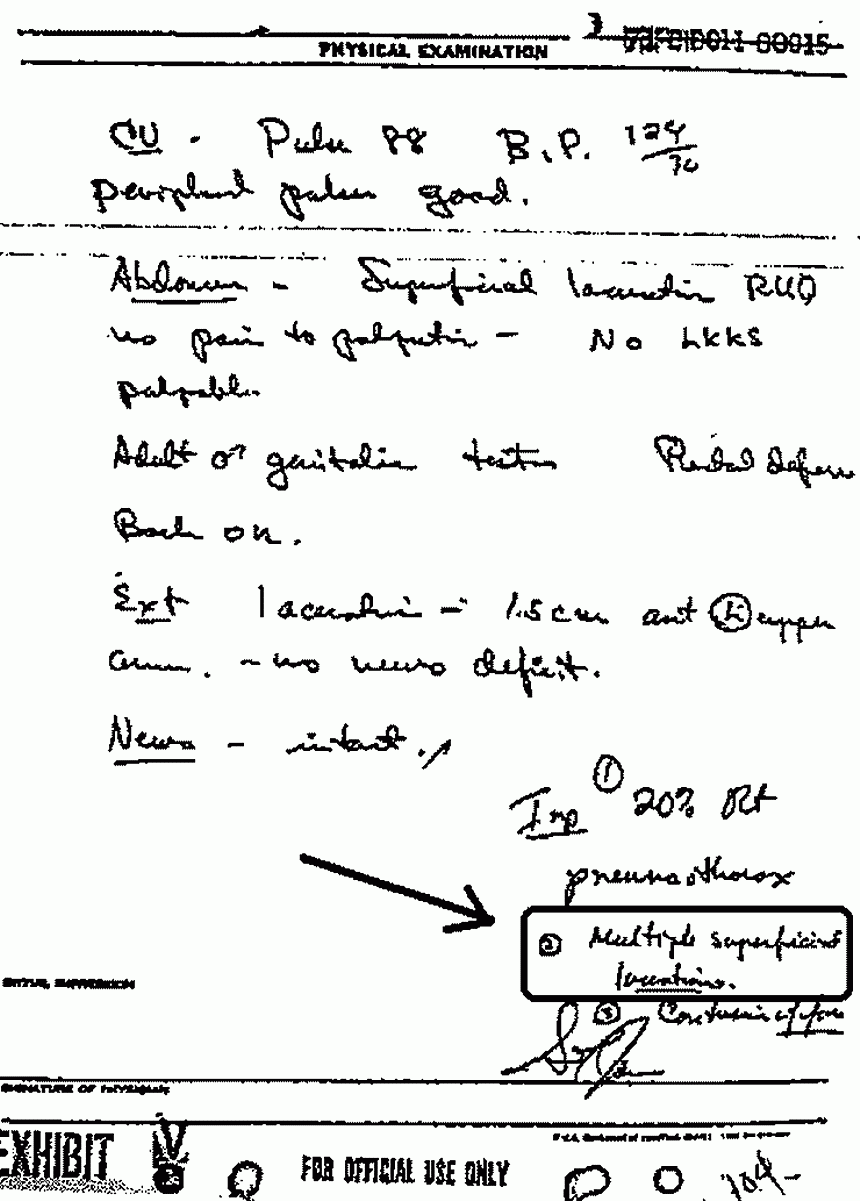 PHYSICAL EXAMINATION
CV - Pulse 88 B.P. 124/70
Peripheral pulses good.
Abdomen - Superficial laceration RUQ
no pain to palpation - No LKKS
palpable
Adult ♂ genitalia testes Rectal defer
Back OK.
Ext laceration - 1.5 cm ant upper
arm. - no neuro deficit.
Neuro - intact.
Imp ① 20% Rt
pneumothorax
② Multiple superficial
lacerations.
③ Contusion of
SIGNATURE OF PHYSICIAN
EXHIBIT
FOR OFFICIAL USE ONLY
104